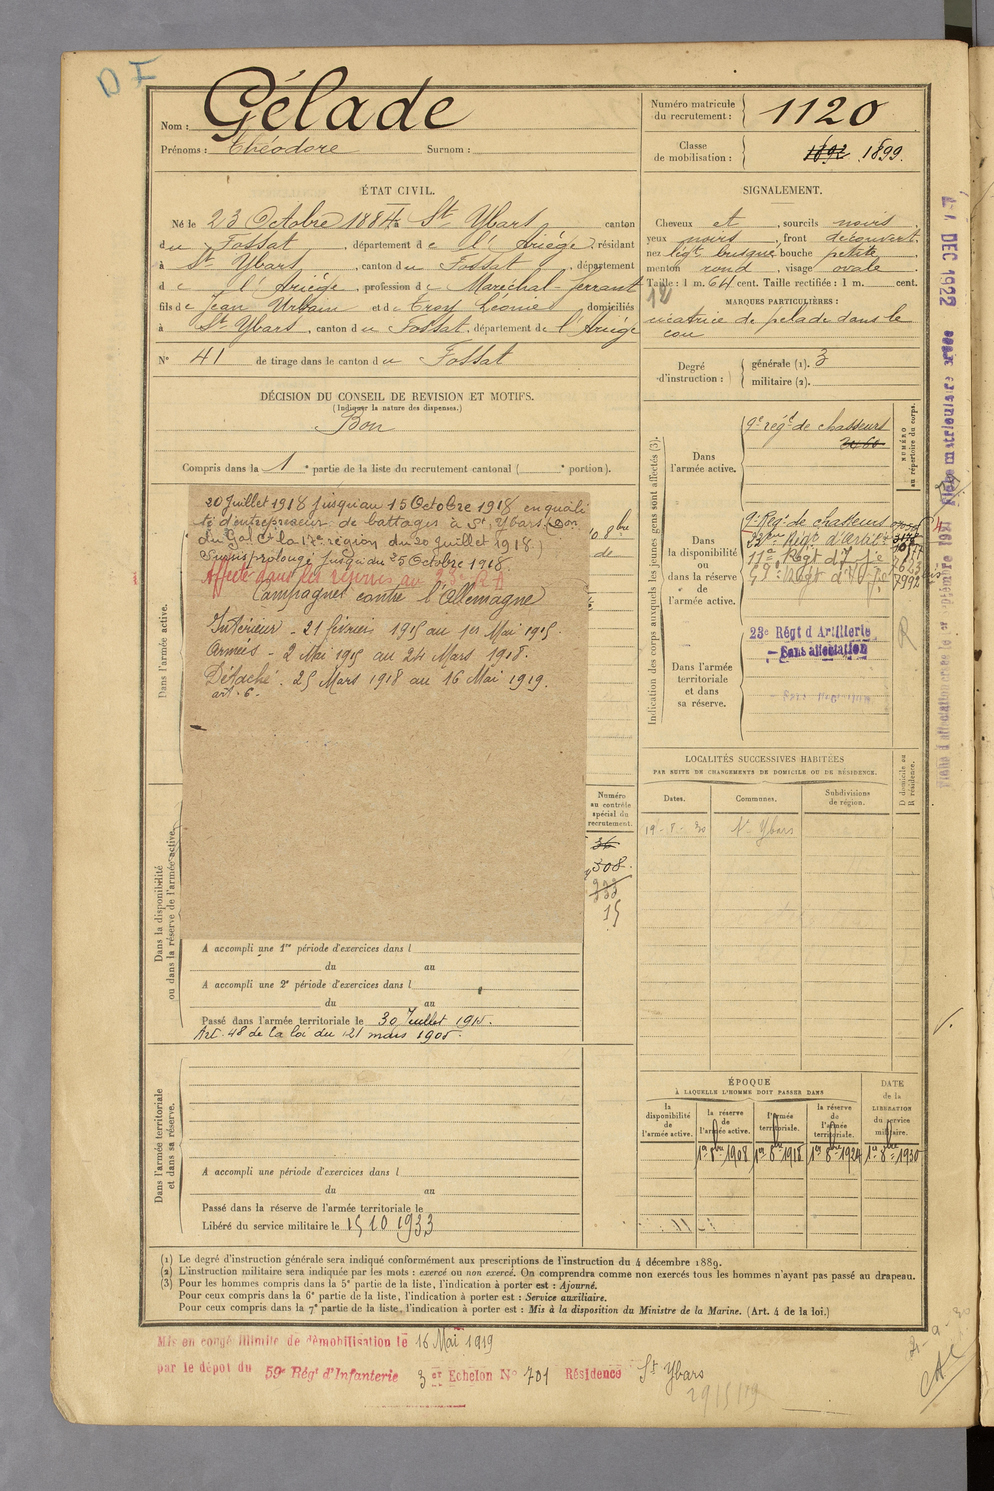 D I
Nom : Gélade
Prénoms : Théodore Surnom :
Numéro matricule du recrutement : 1120
Classe de mobilisation : 1892 1899.
ÉTAT CIVIL.
Né le 23 Octobre 1884 à St Ybars, canton
du Fossat, département de l'Ariège, résidant
à St Ybars, canton du Fossat, département
de l'Ariège, profession de Maréchal-ferrant
fils de Jean Urbain et de Croy Léonie domiciliés
à St Ybars, canton du Fossat, département de l'Ariège
N° 41 de tirage dans le canton du Fossat
SIGNALEMENT.
Cheveux et, sourcils noirs
yeux noirs, front découvert
nez légt busqué bouche petite
menton rond, visage ovale
Taille : 1 m. 64 cent. Taille rectifiée : 1 m. cent.
MARQUES PARTICULIÈRES :
cicatrice de pelade dans le
cou
Degré d'instruction : générale (1). 3
militaire (2).
DÉCISION DU CONSEIL DE REVISION ET MOTIFS.
(Indiquer la nature des dispenses.)
Bon
Compris dans la 1e partie de la liste du recrutement cantonal ( e portion).
20 Juillet 1918 jusqu'au 15 Octobre 1918 en quali
té d'entrepreneur de battages à St Ybars (Don
du Gal Ct la 17e région du 20 Juillet 1918.)
Sursis prolongé jusqu'au 25 Octobre 1918
Affecté dans les réserves au
Campagnes contre l'Allemagne
Intérieur - 21 février 1915 au 1er Mai 1915.
Armées - 2 Mai 1915 au 24 Mars 1918.
Détaché. 25 Mars 1918 au 16 Mai 1919.
art. 6.
8bre
de
Dans l'armée active.
Dans la disponibilité
ou dans la réserve de l'armée active.
Numéro
au contrôle
spécial du
recrutement.
36
308
333
15
A accompli une 1re période d'exercices dans l
du au
A accompli une 2e période d'exercices dans l
du au
Passé dans l'armée territoriale le 30 Juillet 1915.
Art. 48 de la loi du 21 mars 1905.
Dans l'armée territoriale
et dans sa réserve.
A accompli une période d'exercices dans l
du au
Passé dans la réserve de l'armée territoriale le
Libéré du service militaire le 15 10 1933
Indication des corps auxquels les jeunes gens sont affectés (3).
NUMÉRO
au répertoire du corps.
Dans
l'armée active.
9e régt de chasseurs
Dans
la disponibilité
ou
dans la réserve
de
l'armée active.
9e Régt de chasseurs
23ème Régt d'Artil
11e Régt d'Ie
59e Régt d'Ie 7992
Dans l'armée
territoriale
et dans
sa réserve.
23e Régt d'Artillerie
Sans affectation
R
LOCALITÉS SUCCESSIVES HABITÉES
PAR SUITE DE CHANGEMENTS DE DOMICILE OU DE RÉSIDENCE.
Dates. Communes. Subdivisions de région. D domicile ou R résidence.
19-8-30 St Ybars
ÉPOQUE
À LAQUELLE L'HOMME DOIT PASSER DANS
DATE
de la
LIBÉRATION
du service
militaire.
la disponibilité de l'armée active.
la réserve de l'armée active.
l'armée territoriale.
la réserve de l'armée territoriale.
1er 8bre 1908 1er 8bre 1918 1er 8bre 1924 1er 8bre 1930
(1) Le degré d'instruction générale sera indiqué conformément aux prescriptions de l'instruction du 4 décembre 1889.
(2) L'instruction militaire sera indiquée par les mots : exercé ou non exercé. On comprendra comme non exercés tous les hommes n'ayant pas passé au drapeau.
(3) Pour les hommes compris dans la 5e partie de la liste, l'indication à porter est : Ajourné.
Pour ceux compris dans la 6e partie de la liste, l'indication à porter est : Service auxiliaire.
Pour ceux compris dans la 7e partie de la liste, l'indication à porter est : Mis à la disposition du Ministre de la Marine. (Art. 4 de la loi.)
Mis en congé illimité de démobilisation le 16 Mai 1919
par le dépôt du 59e Régt d'Infanterie 3er Echelon N° 701 Résidence St Ybars
29/5/19
DEC 1922